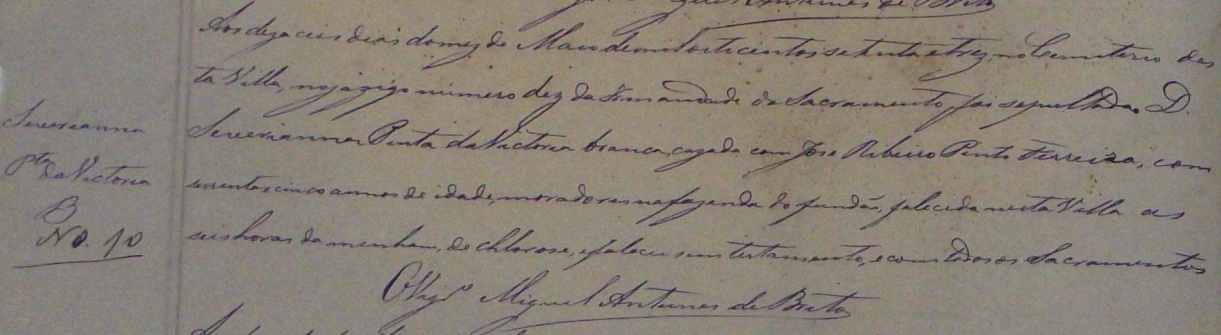 Antunes de Brito
Aos dezaceis dias do mez de Maio de mil oitocentos setenta e trez, no Cemiterio des
ta Villa, no jazigo numero dez da Irmandade do Sacramento, foi sepultada D.
Severianna Pinta da Victoria branca, cazada com José Ribeiro Pinto Ferreira, com
secenta e cinco annos de idade, moradores na fazenda do fundão, falecida nesta Villa as
seis horas da menham, de chlorose, e faleceu sem testamento, e com todos os Sacramentos
O Vigrº Miguel Antunes de Brito
Severianna
Pta da Victoria
B
No. 10